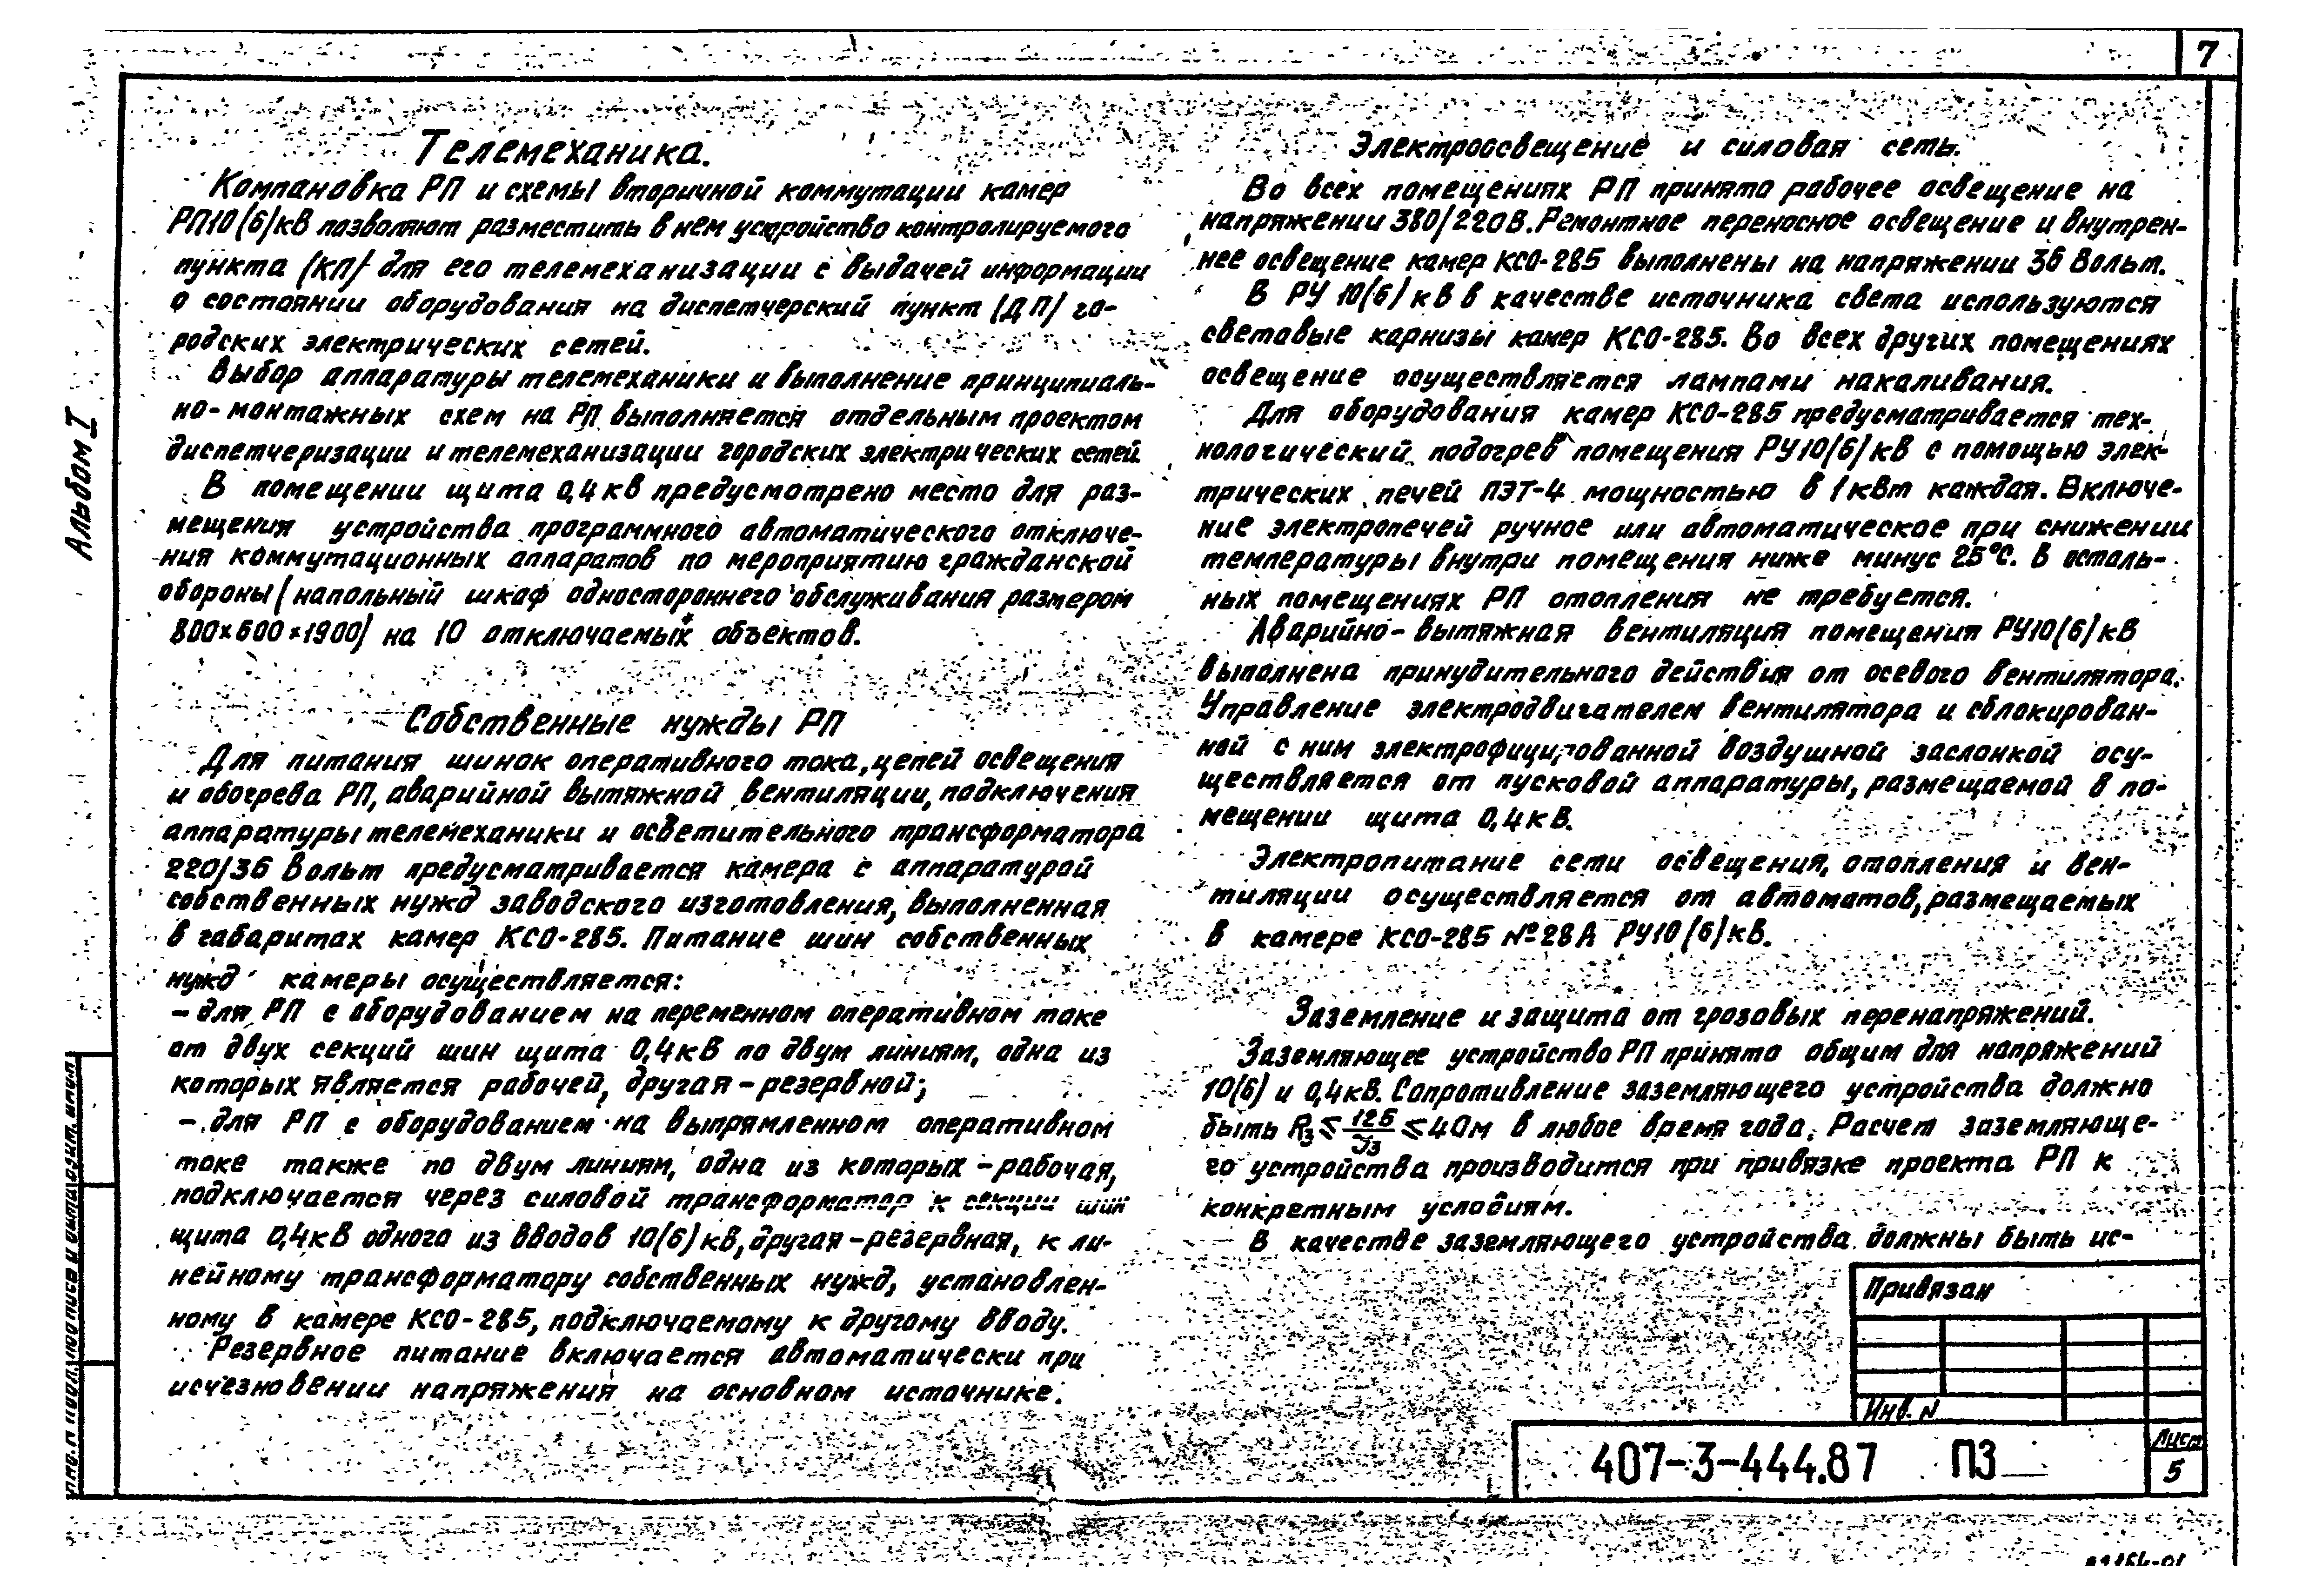 7
Альбом I
Телемеханика.
Компановка РП и схемы вторичной коммутации камер
РП10(6)кВ позволяют разместить в нем устройство контролируемого
пункта (КП) для его телемеханизации с выдачей информации
о состоянии оборудования на диспетчерский пункт (ДП) го-
родских электрических сетей.
Выбор аппаратуры телемеханики и выполнение принципиаль-
но-монтажных схем на РП выполняется отдельным проектом
диспетчеризации и телемеханизации городских электрических сетей
В помещении щита 0,4кв предусмотрено место для раз-
мещения устройства программного автоматического отключе-
ния коммутационных аппаратов по мероприятию гражданской
обороны (напольный шкаф одностороннего обслуживания размером
800×600×1900) на 10 отключаемых объектов.
Собственные нужды РП
Для питания шинок оперативного тока, цепей освещения
и обогрева РП, аварийной вытяжной вентиляции, подключения
аппаратуры телемеханики и осветительного трансформатора
220/36 Вольт предусматривается камера с аппаратурой
собственных нужд заводского изготовления, выполненная
в габаритах камер КСО-285. Питание шин собственных
нужд камеры осуществляется:
- для РП с оборудованием на переменном оперативном токе
от двух секций шин щита 0,4кВ по двум линиям, одна из
которых является рабочей, другая - резервной;
- для РП с оборудованием на выпрямленном оперативном
токе также по двум линиям, одна из которых - рабочая,
подключается через силовой трансформатор к секции шин
щита 0,4кВ одного из вводов 10(6)кв, другая - резервная, к ли-
нейному трансформатору собственных нужд, установлен-
ному в камере КСО-285, подключаемому к другому вводу.
Резервное питание включается автоматически при
исчезновении напряжения на основном источнике.
Электроосвещение и силовая сеть.
Во всех помещениях РП принято рабочее освещение на
напряжении 380/220В. Ремонтное переносное освещение и внутрен-
нее освещение камер КСО-285 выполнены на напряжении 36 Вольт.
В РУ 10(6)кВ в качестве источника света используются
световые карнизы камер КСО-285. Во всех других помещениях
освещение осуществляется лампами накаливания.
Для оборудования камер КСО-285 предусматривается тех-
нологический подогрев помещения РУ10(6)кВ с помощью элек-
трических печей ПЭТ-4 мощностью в 1кВт каждая. Включе-
ние электропечей ручное или автоматическое при снижении
температуры внутри помещения ниже минус 25°С. В осталь-
ных помещениях РП отопления не требуется.
Аварийно-вытяжная вентиляция помещения РУ10(6)кВ
выполнена принудительного действия от осевого вентилятора.
Управление электродвигателем вентилятора и сблокирован-
ной с ним электрофицированной воздушной заслонкой осу-
ществляется от пусковой аппаратуры, размещаемой в по-
мещении щита 0,4кВ.
Электропитание сети освещения, отопления и вен-
тиляции осуществляется от автоматов, размещаемых
в камере КСО-285 №28А РУ10(6)кВ.
Заземление и защита от грозовых перенапряжений.
Заземляющее устройство РП принято общим для напряжений
10(6) и 0,4кВ. Сопротивление заземляющего устройства должно
быть Rз ≤ 125/Jз ≤ 4Ом в любое время года. Расчет заземляюще-
го устройства производится при привязке проекта РП к
конкретным условиям.
В качестве заземляющего устройства должны быть ис-
Привязан
Инв. N
407-3-444.87 ПЗ
Лист
5